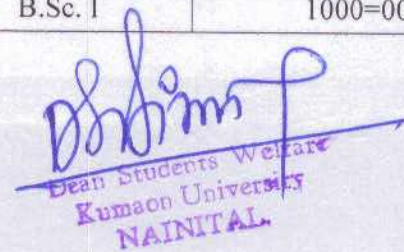 B.Sc. I 1000=00
Dean Students Welfare
Kumaon University
NAINITAL.